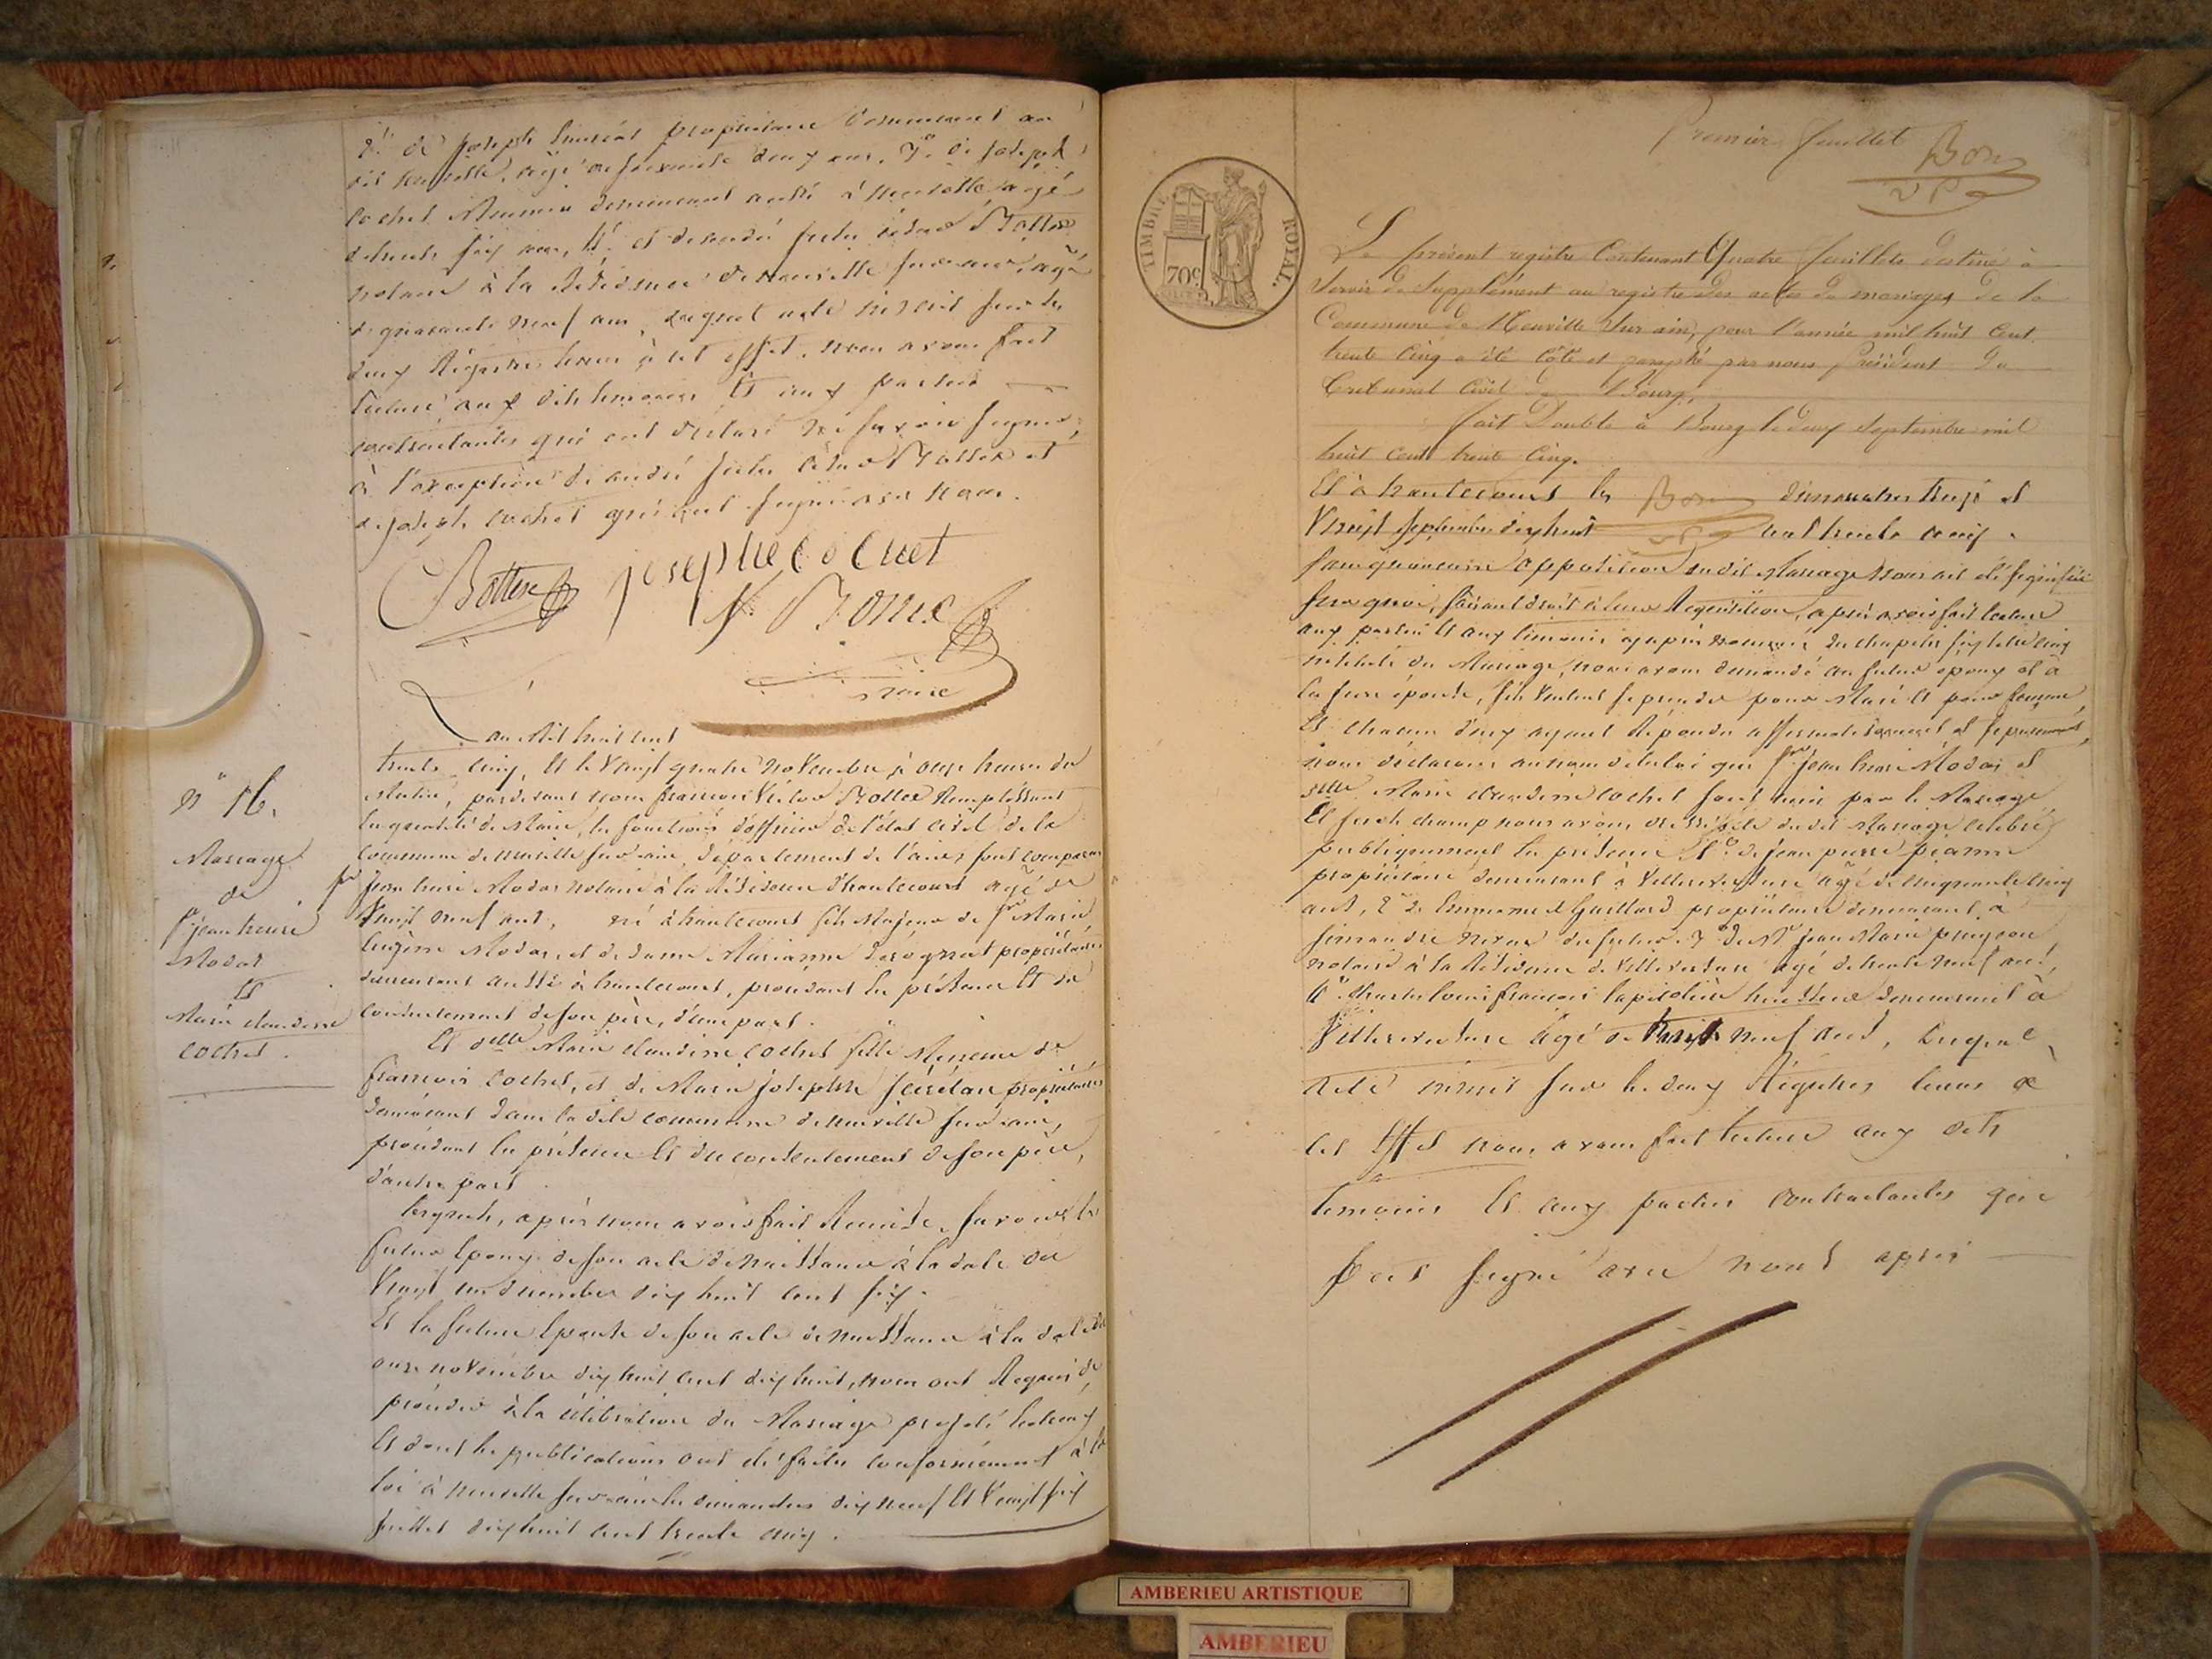 2º de joseph propriétaire demeurant au
dit neuville, agé de soixante deux ans, 3º de joseph
cochet Meunier demeurant aussi à neuville agé
de trente six ans, 4º et de andré Bottex
notaire à la Résidence de neuville sur ain, agé
de quarante neuf ans, duquel acte inscrit sur les
deux Régistres tenus à cet effet, nous avons fait
lecture aux dits témoins Et aux parties
contractantes qui ont déclaré ne savoir signer,
à l'exception de andré Bottex et
de joseph cochet qui ont signé avec nous.
Bottex josephe cochet
V. Bottex
maire
L'an Mil huit cent
trente cinq, Et le Vingt quatre novembre à onze heures du
Matin, pardevant nous françois Victor Bottex Remplissant
en qualité de Maire, les fonctions d'officier de l'état civil de la
commune de neuville sur ain, département de l'ain, sont comparus
nº 16.
Mariage
de
Sr jean henri
Modas
Et
Marie claudine
cochet.
Sr Jean henri Modas notaire à la Résidence d'hautecourt agé de
Vingt neuf ans, né à hautecourt fils Majeur de Sr Marie
Eugène Modas, et de dame Marianne propriétaires
demeurant aussi à hautecourt, procédant en présence Et du
consentement de son père, d'une part.
Et delle Marie claudine cochet fille Mineure de
françois Cochet, et de Marie josephte propriétaires
demeurant dans la dite commune de neuville sur ain,
procédant en présence Et du consentement de son père,
d'autre part.
lesquels, après nous avoir fait Remise, savoir le
futur Epoux de son acte de naissance à la date du
Vingt un décembre dix huit cent six.
Et la future Epouse de son acte de naissance à la date du
onze novembre dix huit cent dix huit, nous ont Requis de
procéder à la célébration du Mariage projeté entr'eux
Et dont les publications ont été faites conformément à la
loi à neuville sur ain les dimanches dix neuf Et Vingt six
juillet dix huit cent trente cinq.
Premier feuillet Bon
TIMBRE ROYAL.
70c
Le présent registre Contenant Quatre feuillets destiné à
Servir de Supplément au registre des actes de mariages de la
Commune de Neuville Sur ain, pour l'année mil huit Cent
trente Cinq a été côté et paraphé par nous Président du
Tribunal Civil de Bourg.
fait Double à Bourg le deux Septembre mil
huit Cent trente Cinq.
Et à hautecourt les Bon dimanches treize et
Vingt septembre dix huit cent trente cinq.
sans qu'aucune oppoSition audit Mariage nous ait été signifiée
sur quoi, faisant droit à leur Requisition, après avoir fait lecture
aux parties Et aux témoins ci après nommés du chapitre six du titre cinq
intitulé du Mariage, nous avons demandé au futur époux et à
la future épouse, s'ils Veulent se prendre pour Mari Et pour femme,
Et chacun d'eux ayant Répondu affirmativement et séparement,
nous déclarons au nom de la loi que Sr jean henri Modas et
delle Marie claudine cochet sont unis par le Mariage.
Et sur le champ nous avons dressé acte du dit Mariage célébré
publiquement En présence 1º de jean pierre
propriétaire demeurant à Villereversure agé de cinquante cinq
ans, 2º de Emmanuel Guillard propriétaire demeurant à
simandre du futur. 3º de Mr jean Marie
notaire à la Résidence de Villereversure agé de trente neuf ans,
4º charles louis françois huissier demeurant à
Villereversure agé de Vingt neuf ans, Duquel
acte inscrit sur les deux Régistres tenus à
cet Effet nous avons fait lecture aux dits
témoins Et aux parties contractantes qui
ont signé avec nous après
AMBERIEU ARTISTIQUE
AMBERIEU